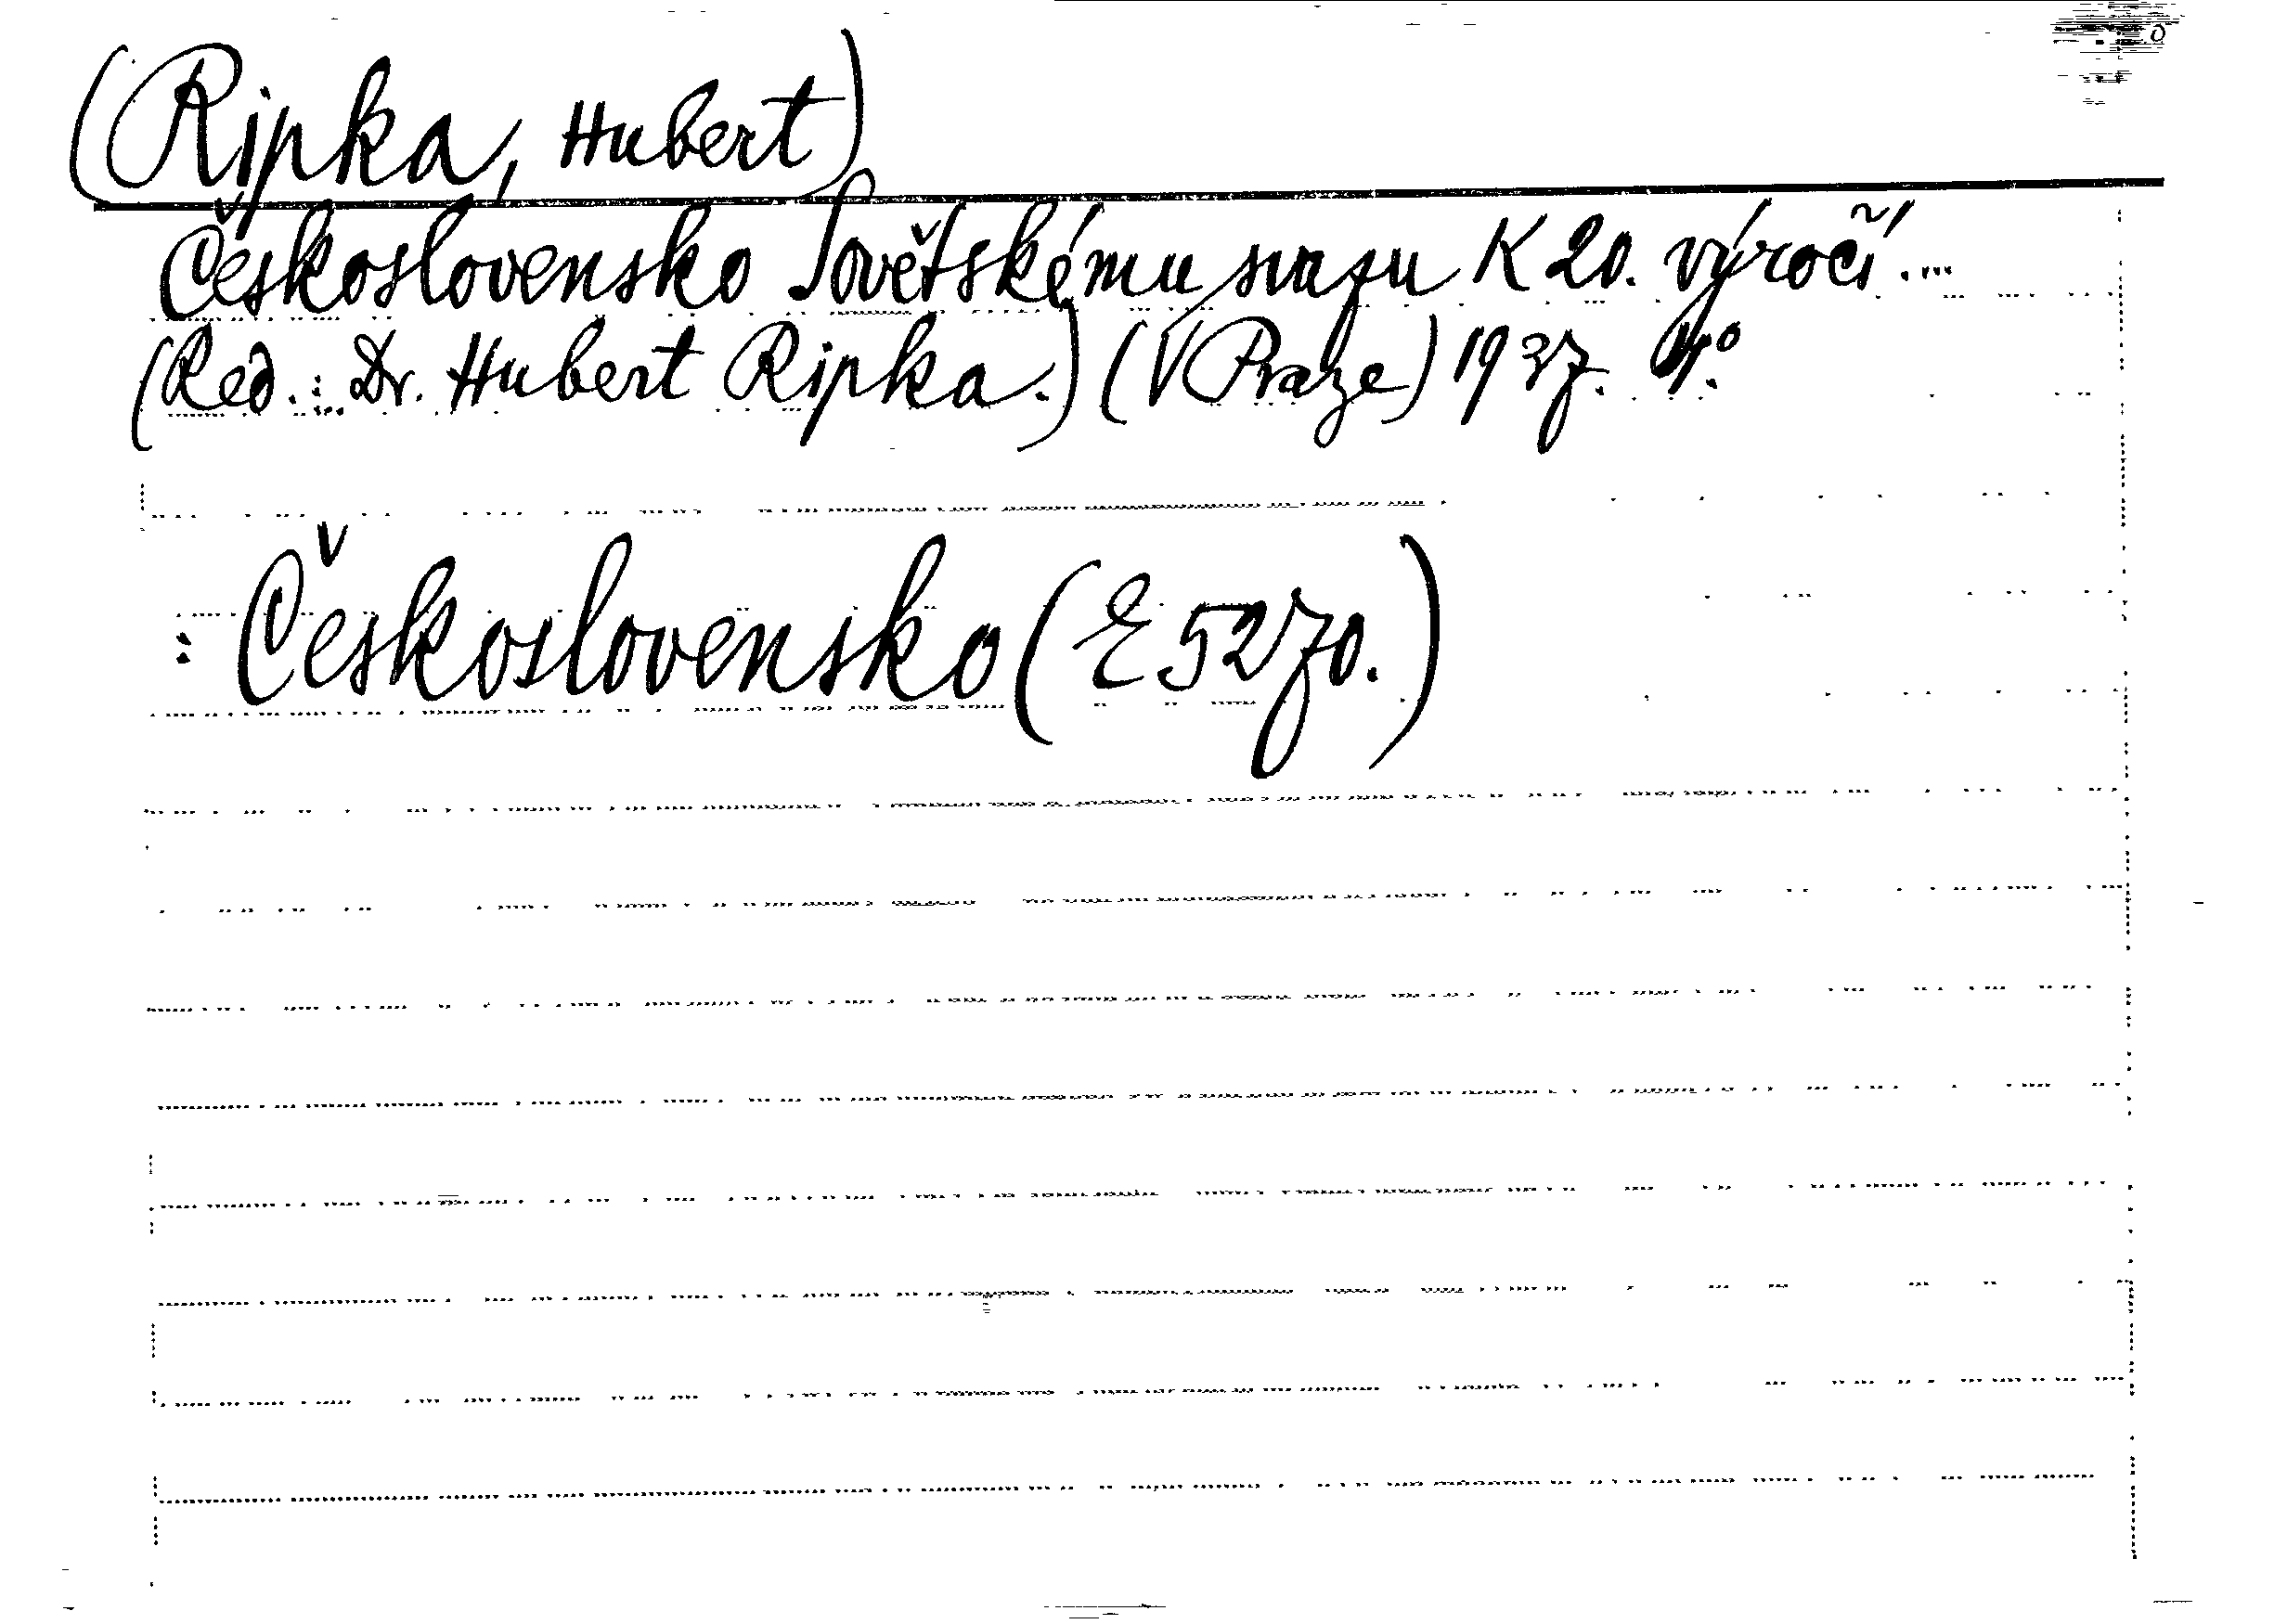 (Ripka, Hubert)
Československo Sovětskému svazu K 20. výročí....
(Red.: Dr. Hubert Ripka.) (V Praze) 1937. 4°.
: Československo (E 5270.)